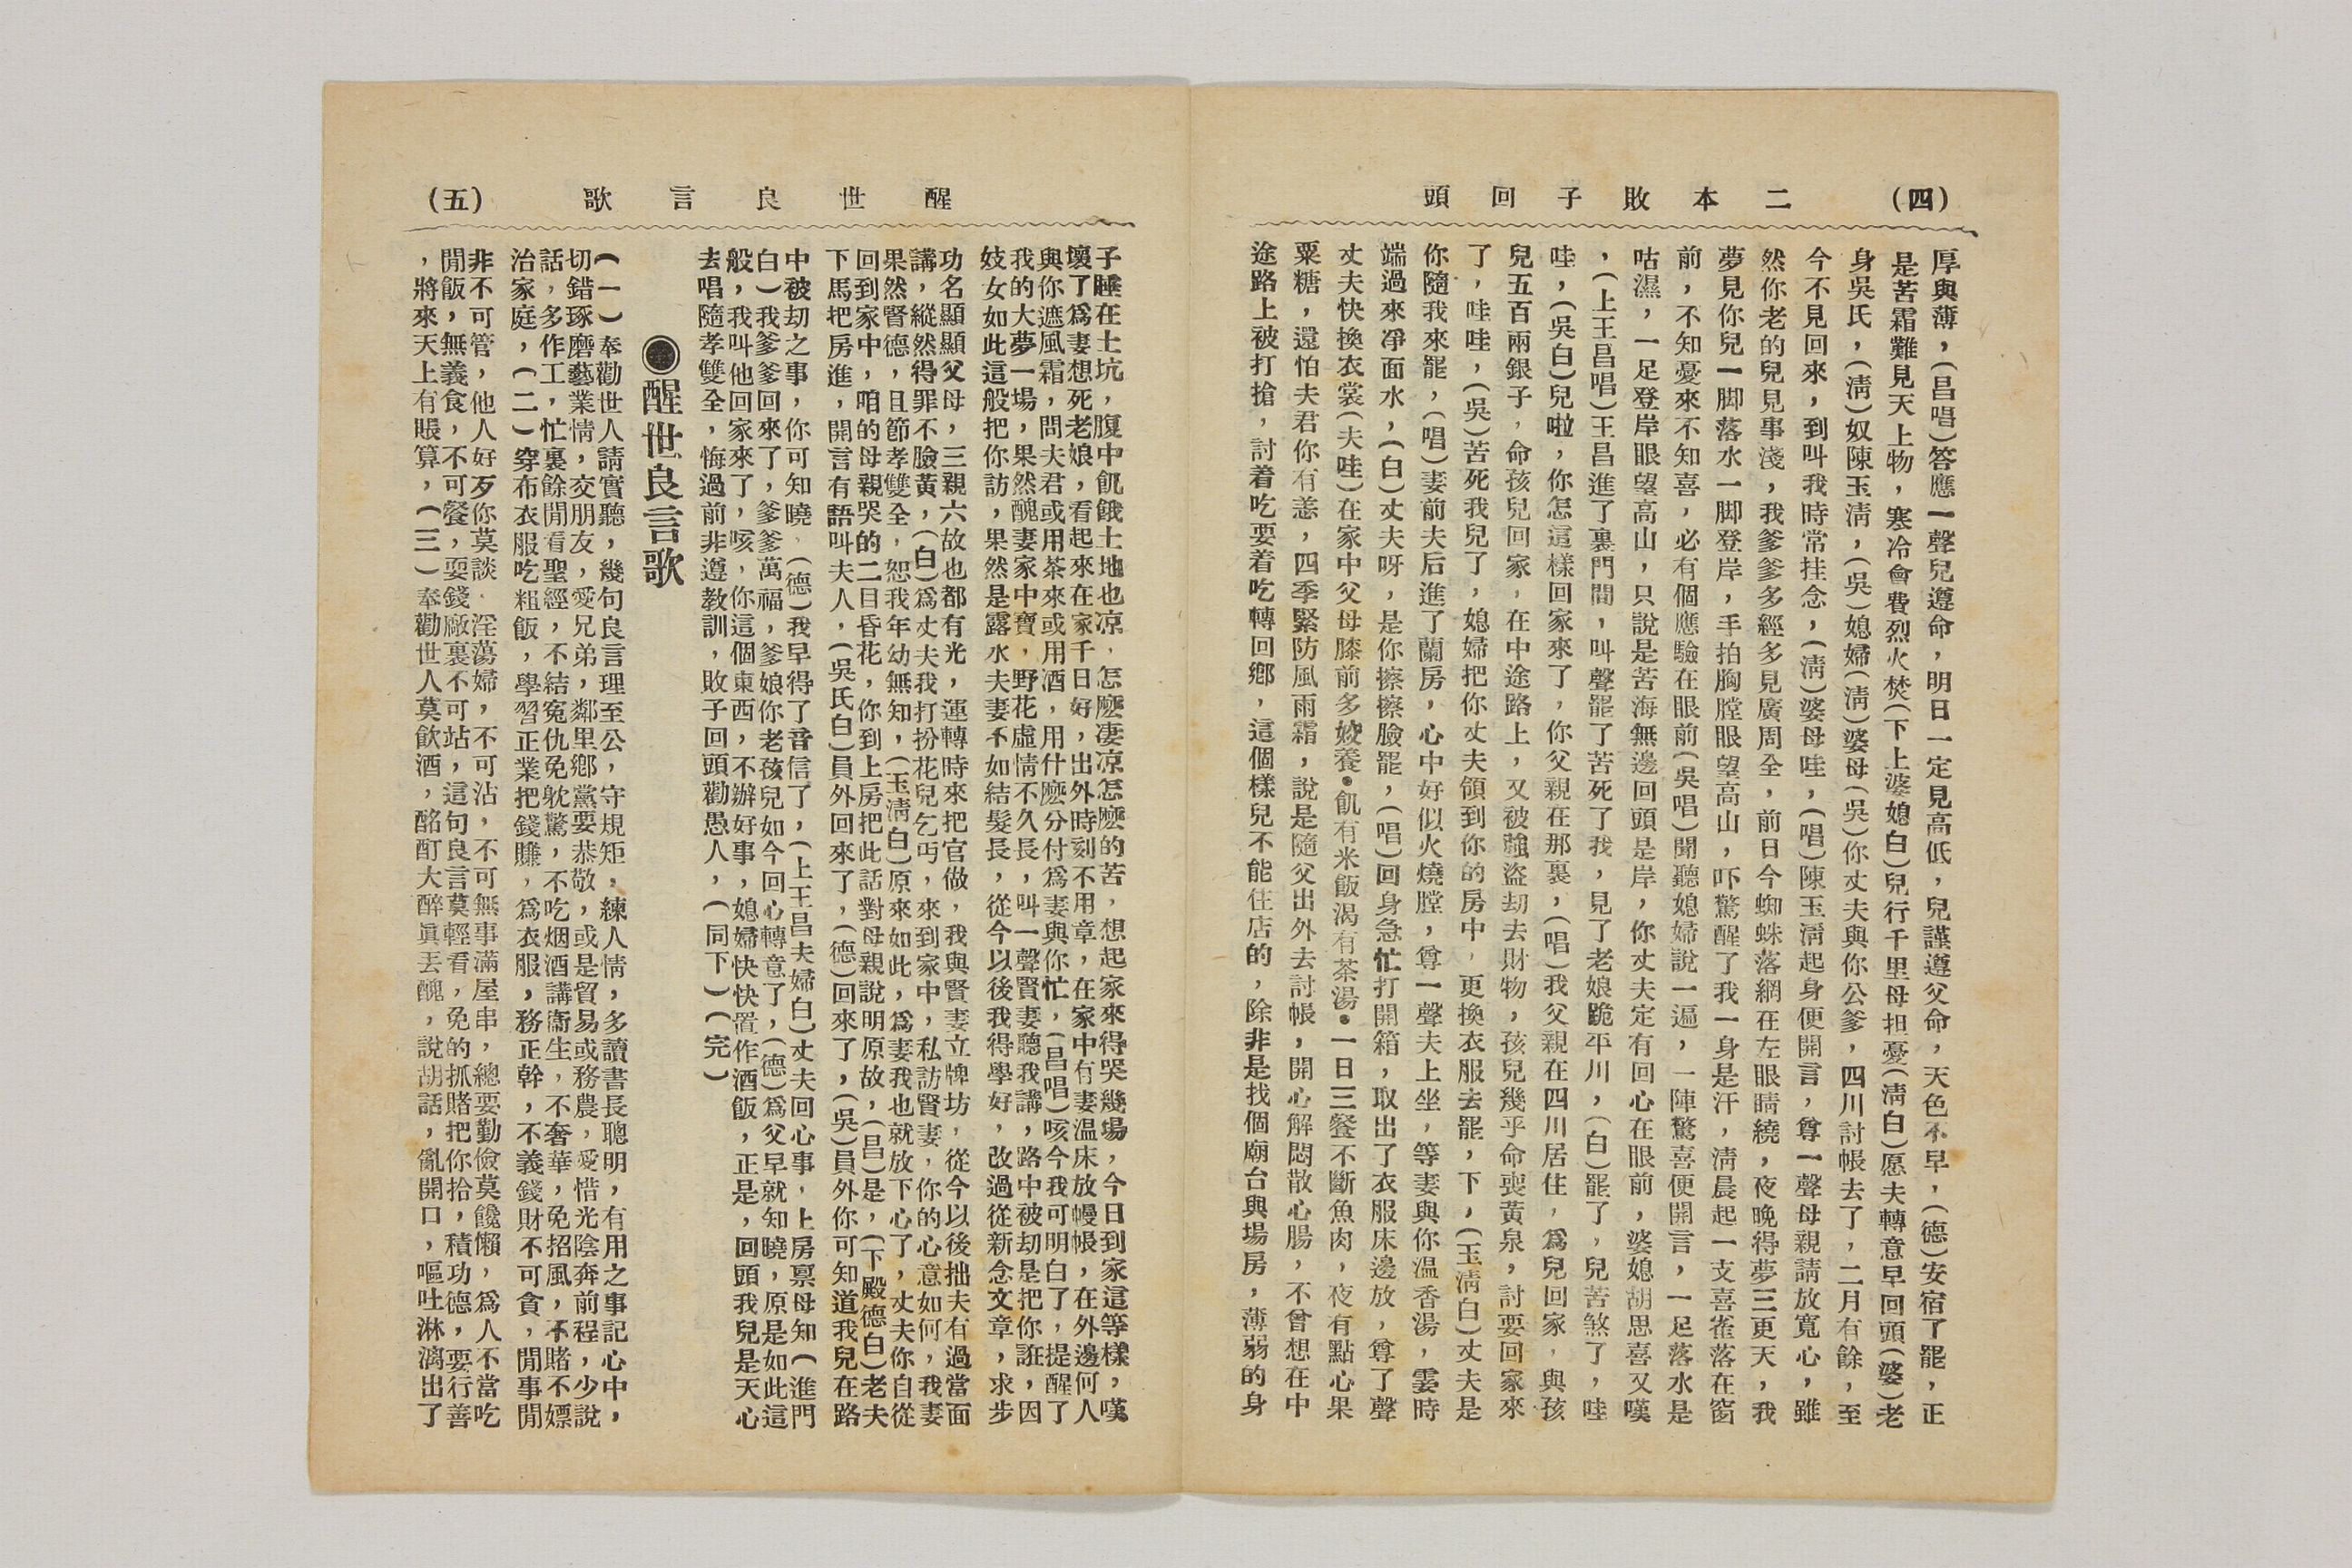 (四) 二本敗子回頭
厚與薄，(昌唱)答應一聲兒遵命，明日一定見高低，兒謹遵父命，天色不早，(德)安宿了罷，正
是苦霜難見天上物，寒冷會費烈火焚(下上婆媳白)兒行千里母担憂(淸白)愿夫轉意早回頭(婆)老
身吳氏，(淸)奴陳玉淸，(吳)媳婦(淸)婆母(吳)你丈夫與你公爹，四川討帳去了，二月有餘，至
今不見回來，到叫我時常挂念，(淸)婆母哇，(唱)陳玉淸起身便開言，尊一聲母親請放寬心，雖
然你老的兒見事淺，我爹爹多經多見廣周全，前日今蜘蛛落網在左眼睛繞，夜晚得夢三更天，我
夢見你兒一脚落水一脚登岸，手拍胸膛眼望高山，吓驚醒了我一身是汗，淸晨起一支喜雀落在窗
前，不知憂來不知喜，必有個應驗在眼前(吳唱)聞聽媳婦說一遍，一陣驚喜便開言，一足落水是
咕濕，一足登岸眼望高山，只說是苦海無邊回頭是岸，你丈夫定有回心在眼前，婆媳胡思喜又嘆
，(上王昌唱)王昌進了裏門間，叫聲罷了苦死了我，見了老娘跪平川，(白)罷了，兒苦煞了，哇
哇，(吳白)兒啦，你怎這樣回家來了，你父親在那裏，(唱)我父親在四川居住，爲兒回家，與孩
兒五百兩銀子，命孩兒回家，在中途路上，又被強盜刧去財物，孩兒幾乎命喪黃泉，討要回家來
了，哇哇，(吳)苦死我兒了，媳婦把你丈夫領到你的房中，更換衣服去罷，下，(玉淸白)丈夫是
你隨我來罷，(唱)妻前夫后進了蘭房，心中好似火燒膛，尊一聲夫上坐，等妻與你溫香湯，霎時
端過來凈面水，(白)丈夫呀，是你擦擦臉罷，(唱)回身急忙打開箱，取出了衣服床邊放，尊了聲
丈夫快換衣裳(夫哇)在家中父母膝前多姣養•飢有米飯渴有茶湯•一日三餐不斷魚肉，夜有點心果
粟糖，還怕夫君你有恙，四季緊防風雨霜，說是隨父出外去討帳，開心解悶散心腸，不曾想在中
途路上被打搶，討着吃要着吃轉回鄉，這個樣兒不能住店的，除非是找個廟台與場房，薄弱的身
(五) 醒世良言歌
子睡在土坑，腹中飢餓土地也凉，怎麽凄凉怎麽的苦，想起家來得哭幾場，今日到家這等樣，嘆
壞了爲妻想死老娘，看起來在家千日好，出外時刻不用章，在家中有妻溫床放幔帳，在外邊何人
與你遮風霜，問夫君或用茶來或用酒，用什麽分付爲妻與你忙，(昌唱)咳今我可明白了，提醒了
我的大夢一場，果然醜妻家中寶，野花虛情不久長，叫一聲賢妻聽我講，路中被刧是把你誑，因
妓女如此這般把你訪，果然是露水夫妻不如結髮長，從今以後我得學好，改過從新念文章，求步
功名顯顯父母，三親六故也都有光，運轉時來把官做，我與賢妻立牌坊，從今以後拙夫有過當面
講，縱然得罪不臉黃，(白)爲丈夫我打扮花兒乞丐，來到家中，私訪賢妻，你的心意如何，我妻
果然賢德，且節孝雙全，恕我年幼無知，(玉淸白)原來如此，爲妻我也就放下心了，丈夫你自從
回到家中，咱的母親哭的二目昏花，你到上房把此話對母親說明原故，(昌)是，(下殿德白)老夫
下馬把房進，開言有語叫夫人，(吳氏白)員外回來了，(德)回來了，(吳)員外你可知道我兒在路
中被刧之事，你可知曉，(德)我早得了音信了，(上王昌夫婦白)丈夫回心事，上房禀母知(進門
白)我爹爹回來了，爹爹萬福，爹娘你老孩兒如今回心轉意了，(德)爲父早就知曉，原是如此這
般，我叫他回家來了，咳，你這個東西，不辦好事，媳婦快快置作酒飯，正是，回頭我兒是天心
去唱隨孝雙全，悔過前非遵教訓，敗子回頭勸愚人，(同下)(完)
◉醒世良言歌
(一)奉勸世人請實聽，幾句良言理至公，守規矩，練人情，多讀書長聰明，有用之事記心中，
切錯琢磨藝業情，交朋友，愛兄弟，鄰里鄉黨要恭敬，或是貿易或務農，愛惜光陰奔前程，少說
話，多作工，忙裏餘閒看聖經，不結冤仇免躭驚，不吃烟酒講衞生，不奢華，免招風，不賭不嫖
治家庭，(二)穿布衣服吃粗飯，學習正業把錢賺，爲衣服，務正幹，不義錢財不可貪，閒事閒
非不可管，他人好歹你莫談，淫蕩婦，不可沾，不可無事滿屋串，總要勤儉莫饞懶，爲人不當吃
閒飯，無義食，不可餐，耍錢廠裏不可站，這句良言莫輕看，免的抓賭把你拾，積功德，要行善
，將來天上有賬算，(三)奉勸世人莫飲酒，酩酊大醉眞丟醜，說胡話，亂開口，嘔吐淋漓出了